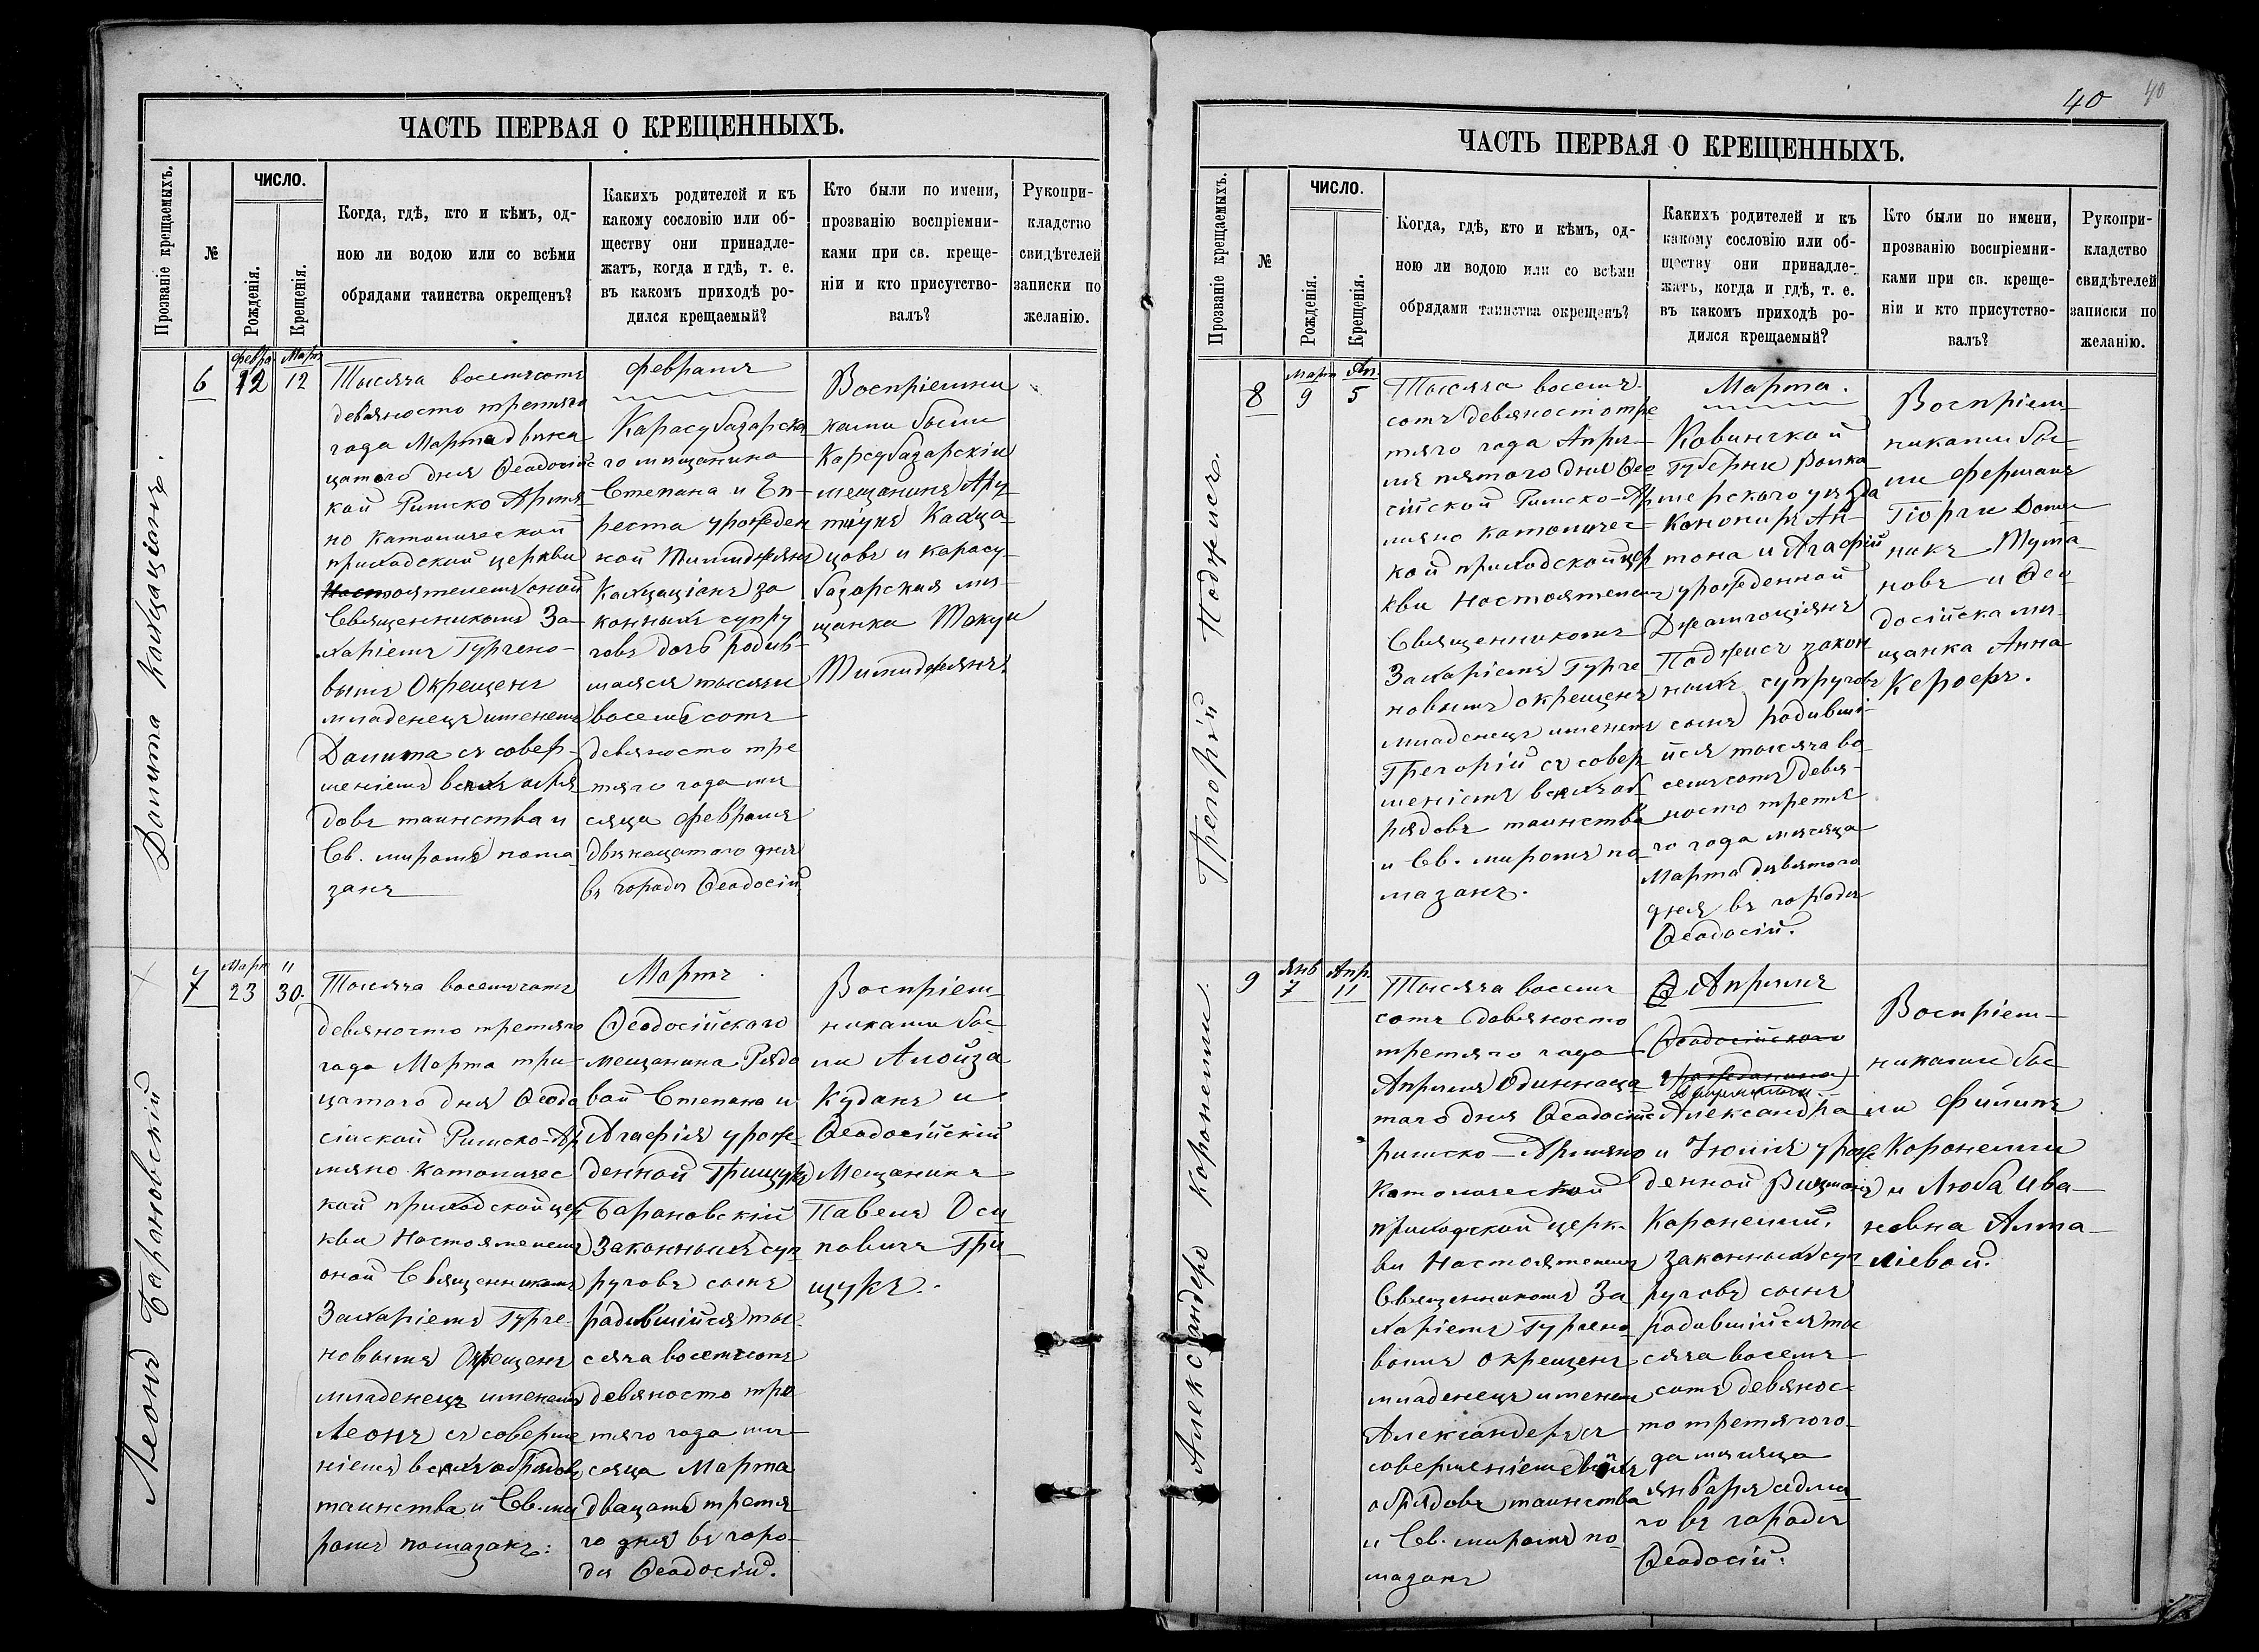 ЧАСТЬ ПЕРВАЯ О КРЕЩЕННЫХЪ.
Прозваніе крещаемыхъ.
№
ЧИСЛО.
Рожденія.
Крещенія.
Когда, гдѣ, кто и кѣмъ, од-
ною ли водою или со всѣми
обрядами таинства окрещенъ?
Какихъ родителей и къ
какому сословію или об-
ществу они принадле-
жатъ, когда и гдѣ, т. е.
въ какомъ приходѣ ро-
дился крещаемый?
Кто были по имени,
прозванію воспріемни-
ками при св. креще-
ніи и кто присутство-
валъ?
Рукопри-
кладство
свидѣтелей
записки по
желанію.
6
февра
12
Мар
12
Тысяча восемьсотъ
девяносто третяго
года Марта двѣна
цатого дня Ѳеодосійс
кой Римско Армя
но Католической
приходской церкви
Настоятелемъ оной
Священникомъ За-
харіемъ Гургено-
вымъ Окрещенъ
младенецъ именемъ
съ совер-
шеніемъ всѣхъ обря
довъ таинства и
Св. миромъ пома
занъ
февраля
Карасубазарска
го мищанина
Степана и Еп-
реста урожден
ной
за
конныхъ супру
говъ дочь родив-
шаяся тысяча
восемьсотъ
девяносто тре
тяго года мѣ
сяца февраля
двѣнацатого дня
въ городѣ Ѳеодосій
Воспріемни
ками были
Карсубазарскіи
мещанинъ
и карасу-
базарская мѣ
щанка
7
Март
23
"
30.
Леонъ Барановскій
Тысяча восемьсотъ
девяносто третяго
года Марта три-
цатого дня Ѳеодо
сійской Римско-Ар
мяно Католичес
кой приходской цер
кви Настоятелемъ
оной Священникомъ
Захаріемъ Гурге-
новымъ Окрещенъ
младенецъ именемъ
Леонъ съ соверше
ніемъ всѣхъ обрядовъ
таинства и Св. ми
ромъ помазанъ.
Мартъ
Ѳеодосійского
мещанина Рядо
вой Степана и
Агафія урож
денной Грищукъ
Барановскій
Законныхъ суп
руговъ сынъ
родившійся ты-
сяча восемьсотъ
девяносто тре
тяго года мѣ
сяца Марта
двацать третя
го дня въ горо-
дѣ Ѳеодосій.
Воспріем-
никами бы
ли Алойза
Куданъ и
Ѳеодосійскій
Мещанинъ
Павелъ Оси
повичъ Гри
щукъ.
40
40
ЧАСТЬ ПЕРВАЯ О КРЕЩЕННЫХЪ.
Прозваніе крещаемыхъ.
№
ЧИСЛО.
Рожденія.
Крещенія.
Когда, гдѣ, кто и кѣмъ, од-
ною ли водою или со всѣми
обрядами таинства окрещенъ?
Какихъ родителей и къ
какому сословію или об-
ществу они принадле-
жатъ, когда и гдѣ, т. е.
въ какомъ приходѣ ро-
дился крещаемый?
Кто были по имени,
прозванію воспріемни-
ками при св. креще-
ніи и кто присутство-
валъ?
Рукопри-
кладство
свидѣтелей
записки по
желанію.
8
Март
9
Ап.
5
Грегорій Поджисъ.
Тысяча восемь
сотъ девяносто тре
тяго года Апрѣ
ля пятого дня Ѳео
сійской Римско-Ар
мяно Католичес-
кой приходской цер
кви Настоятелемъ
Священникомъ
Захаріемъ Гурге
новымъ окрещенъ
младенецъ именемъ
Грегорій съ совер
шеніемъ всѣхъ об
рядовъ таинства
и Св. миромъ по
мазанъ.
Марта.
Губерни
уѣзда
Канониръ Ан-
тона и Агафій
урожденной
Поджисъ закон
ныхъ супруговъ
сынъ родивші-
йся тысяча во
семьсотъ девя-
носто третя
го года мѣсяца
Марта девятого
дня въ городѣ
Ѳеодосій.
Воспріем-
никами бы-
ли
Гіорги Доми
никъ Тума-
новъ и Ѳео
досійска мѣ
щанка Анна
9
Янв
7
Апр.
11
Александеръ Коронелли.
Тысяча восемь
сотъ девяносто
третяго года
Апрѣля Одиннаца
таго дня Ѳеодосійс
римско-Армяно
Католической
приходской церк-
ви Настоятелемъ
Священникомъ За
харіемъ Гургено
вымъ окрещенъ
младенецъ именемъ
Александеръ съ
совершеніемъ всѣхъ
обрядовъ таинства
и Св. миромъ по
мазанъ
Апрѣль
Ѳеодосійского
Александра
и Юлія урож
денной
Коронелли.
законныхъ суп
руговъ сынъ
родившійся ты
сяча восемь
сотъ девянос-
то третяго го-
да мѣсяца
января седма
го въ городѣ
Ѳеодосій.
Воспріем-
никами бы
ли Филипъ
Коронелли
и Люба Ива-
новна Алта-
ліевой.